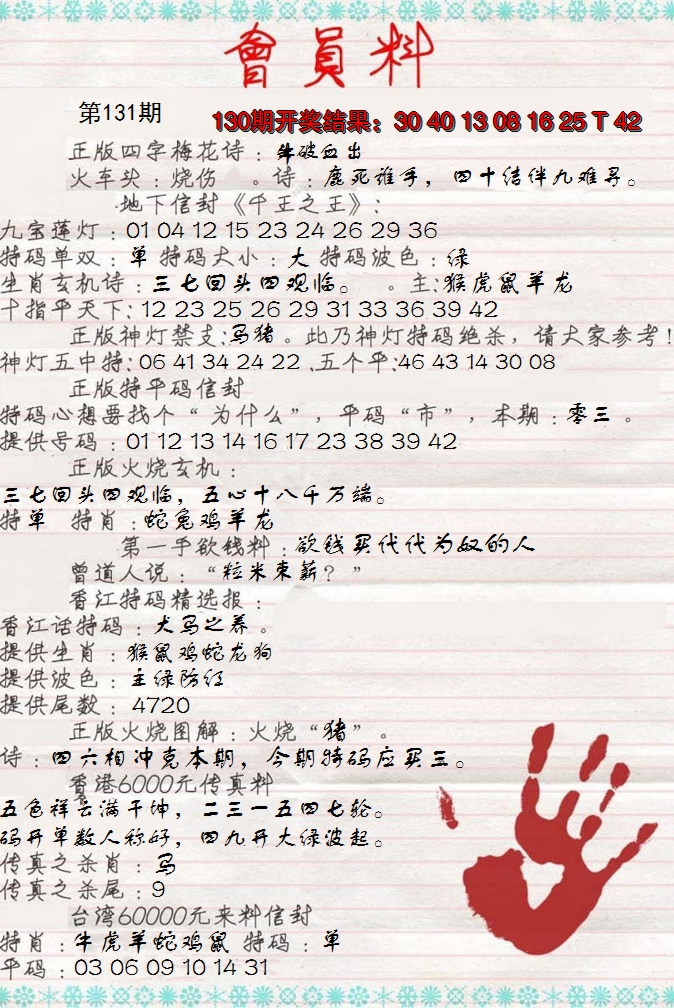 會員料
第131期
130期开奖结果：30 40 13 08 16 25 T 42
正版四字梅花诗：牛破血出
火车头：烧伤 。诗：鹿死谁手，四十结伴九难寻。
地下信封《千王之王》：
九宝莲灯：01 04 12 15 23 24 26 29 36
特码单双：单 特码大小：大 特码波色：绿
生肖玄机诗：三七回头四观临。 。主:猴虎鼠羊龙
十指平天下: 12 23 25 26 29 31 33 36 39 42
正版神灯禁支:马猪。此乃神灯特码绝杀，请大家参考!
神灯五中特:06 41 34 24 22 .五个平:46 43 14 30 08
正版特平码信封
特码心想要找个“为什么”，平码“市”，本期：零三 。
提供号码：01 12 13 14 16 17 23 38 39 42
正版火烧玄机：
三七回头四观临，五心十八千万端。
特单 特肖：蛇兔鸡羊龙
第一手欲钱料：欲钱买代代为奴的人
曾道人说：“粒米束薪？”
香江特码精选报：
香江话特码：犬马之养。
提供生肖：猴鼠鸡蛇龙狗
提供波色：主绿防红
提供尾数：4720
正版火烧图解：火烧“猪”。
诗：四六相冲克本期，今期特码应买三。
香港6000元传真料
五色祥云满干坤，二三一五四七轮。
码开单数人称好，四九开大绿波起。
传真之杀肖：马
传真之杀尾：9
台湾60000元来料信封
特肖：牛虎羊蛇鸡鼠 特码：单
平码：03 06 09 10 14 31